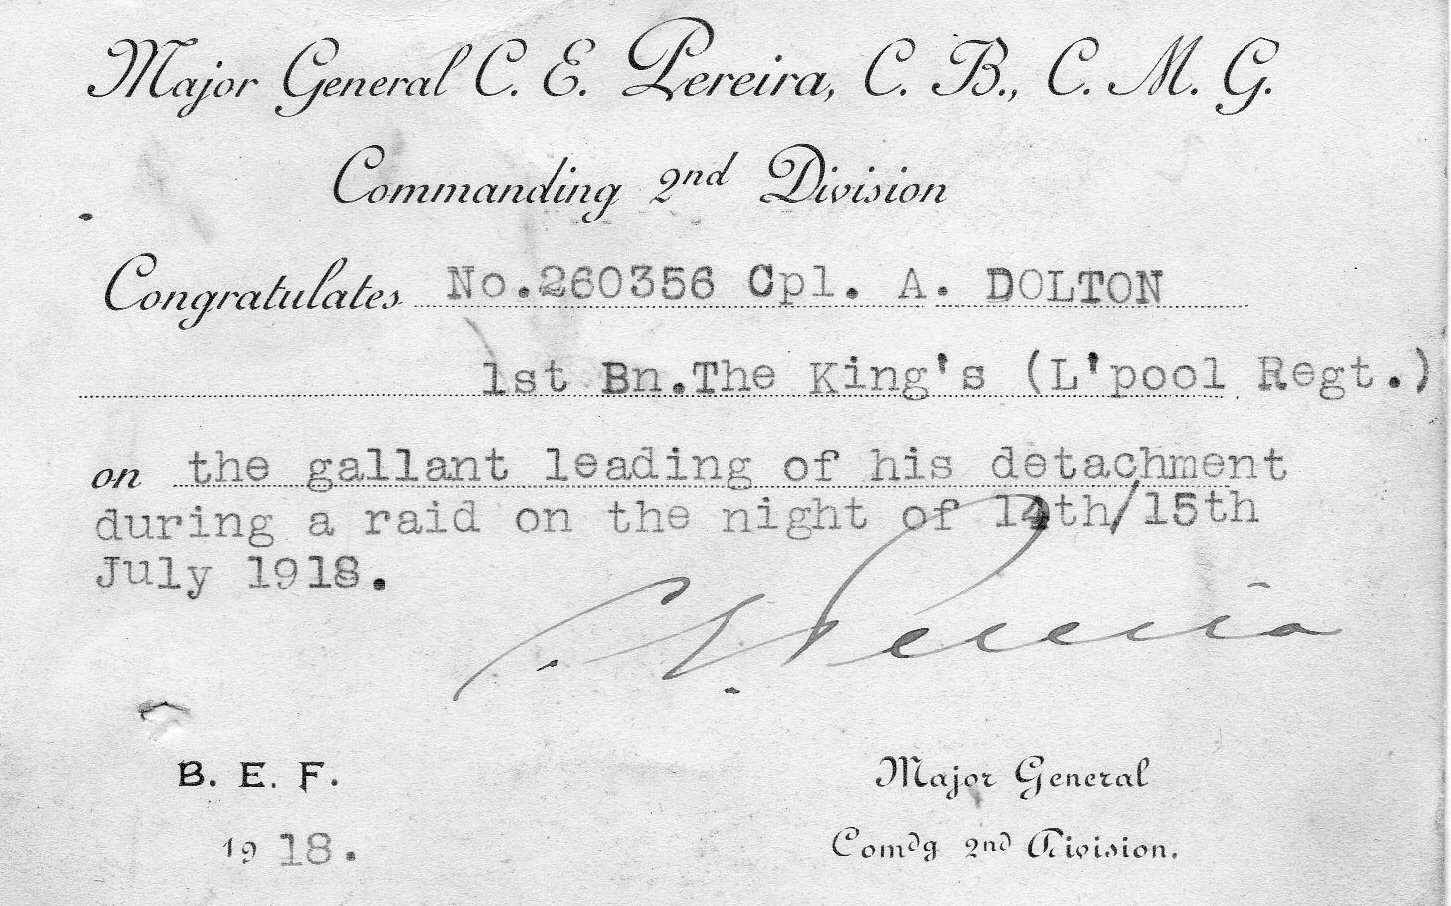 Major General C. E. Pereira, C. B., C. M. G.
Commanding 2nd Division
Congratulates No.260356 Cpl. A. DOLTON
1st Bn.The King's (L'pool Regt.)
on the gallant leading of his detachment
during a raid on the night of 14th/15th
July 1918.
C. E. Pereira
B. E. F.
Major General
1918.
Comdg 2nd Division.